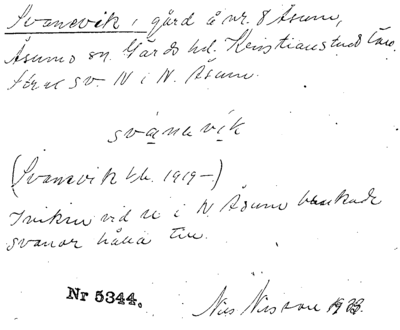 Svanevik, gård å nr. 8 Åsum,
Åsums sn. Gärds hd. Kristianstads län.
sv. N i N. Åsum.
svanevik
(Svanevik 1919-)
vid i N Åsum brukade
svanor hålla till.
Nr 5344.
Nils Nilsson 1923.